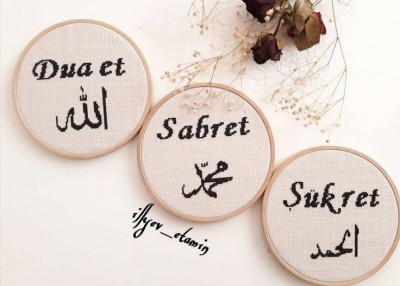 Dua et
الله
Sabret
محمد
Şükret
الحمد
illyev_etamin